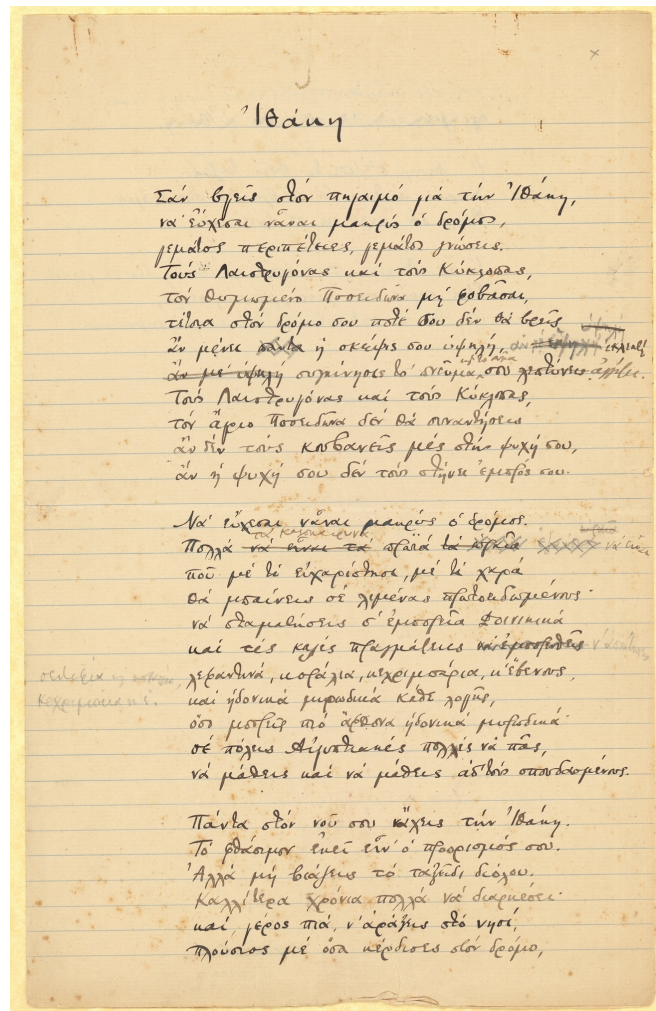 Ἰθάκη
Σὰν βγεῖς στὸν πηγαιμὸ γιὰ τὴν Ἰθάκη,
νὰ εὔχεσαι νἆναι μακρὺς ὁ δρόμος,
γεμάτος περιπέτειες, γεμάτος γνώσεις.
Τοὺς Λαιστρυγόνας καὶ τοὺς Κύκλωπας,
τὸν θυμωμένο Ποσειδῶνα μὴ φοβᾶσαι,
τέτοια στὸν δρόμο σου ποτέ σου δὲν θὰ βρεῖς
ἂν μένει ἡ σκέψις σου ὑψηλή, ἐκλεκτὴ
συγκίνησις τὸ πνεῦμα σου
Τοὺς Λαιστρυγόνας καὶ τοὺς Κύκλωπας,
τὸν ἄγριο Ποσειδῶνα δὲν θὰ συναντήσεις
ἂν δὲν τοὺς κουβανεῖς μὲς στὴν ψυχή σου,
ἂν ἡ ψυχή σου δὲν τοὺς στήνει ἐμπρός σου.
Νὰ εὔχεσαι νἆναι μακρὺς ὁ δρόμος.
τὰ καλοκαιρινὰ
Πολλὰ νὰ εἶναι τὰ πρωϊὰ νὰ εἶναι
ποῦ μὲ τί εὐχαρίστησι, μὲ τί χαρὰ
θὰ μπαίνεις σὲ λιμένας πρωτοειδωμένους·
νὰ σταματήσεις σ' ἐμπορεῖα Φοινικικὰ
καὶ τὲς καλὲς πραγμάτειες ν' ἀποκτήσεις
σεντέφια
λεβαντινά, κοράλια, κεχριμπάρια, κ' ἔβενους,
καὶ ἡδονικὰ μυρωδικὰ κάθε λογῆς,
ὅσο μπορεῖς πιὸ ἄφθονα ἡδονικὰ μυρωδικά·
σὲ πόλεις Αἰγυπτιακὲς πολλὲς νὰ πᾷς,
νὰ μάθεις καὶ νὰ μάθεις ἀπ' τοὺς σπουδασμένους.
Πάντα στὸν νοῦ σου νἄχεις τὴν Ἰθάκη.
Τὸ φθάσιμον ἐκεῖ εἶν' ὁ προορισμός σου.
Ἀλλὰ μὴ βιάζεις τὸ ταξεῖδι διόλου.
Καλλίτερα χρόνια πολλὰ νὰ διαρκέσει·
καί, γέρος πιά, ν' ἀράξεις στὸ νησί,
πλούσιος μὲ ὅσα κέρδισες στὸν δρόμο,